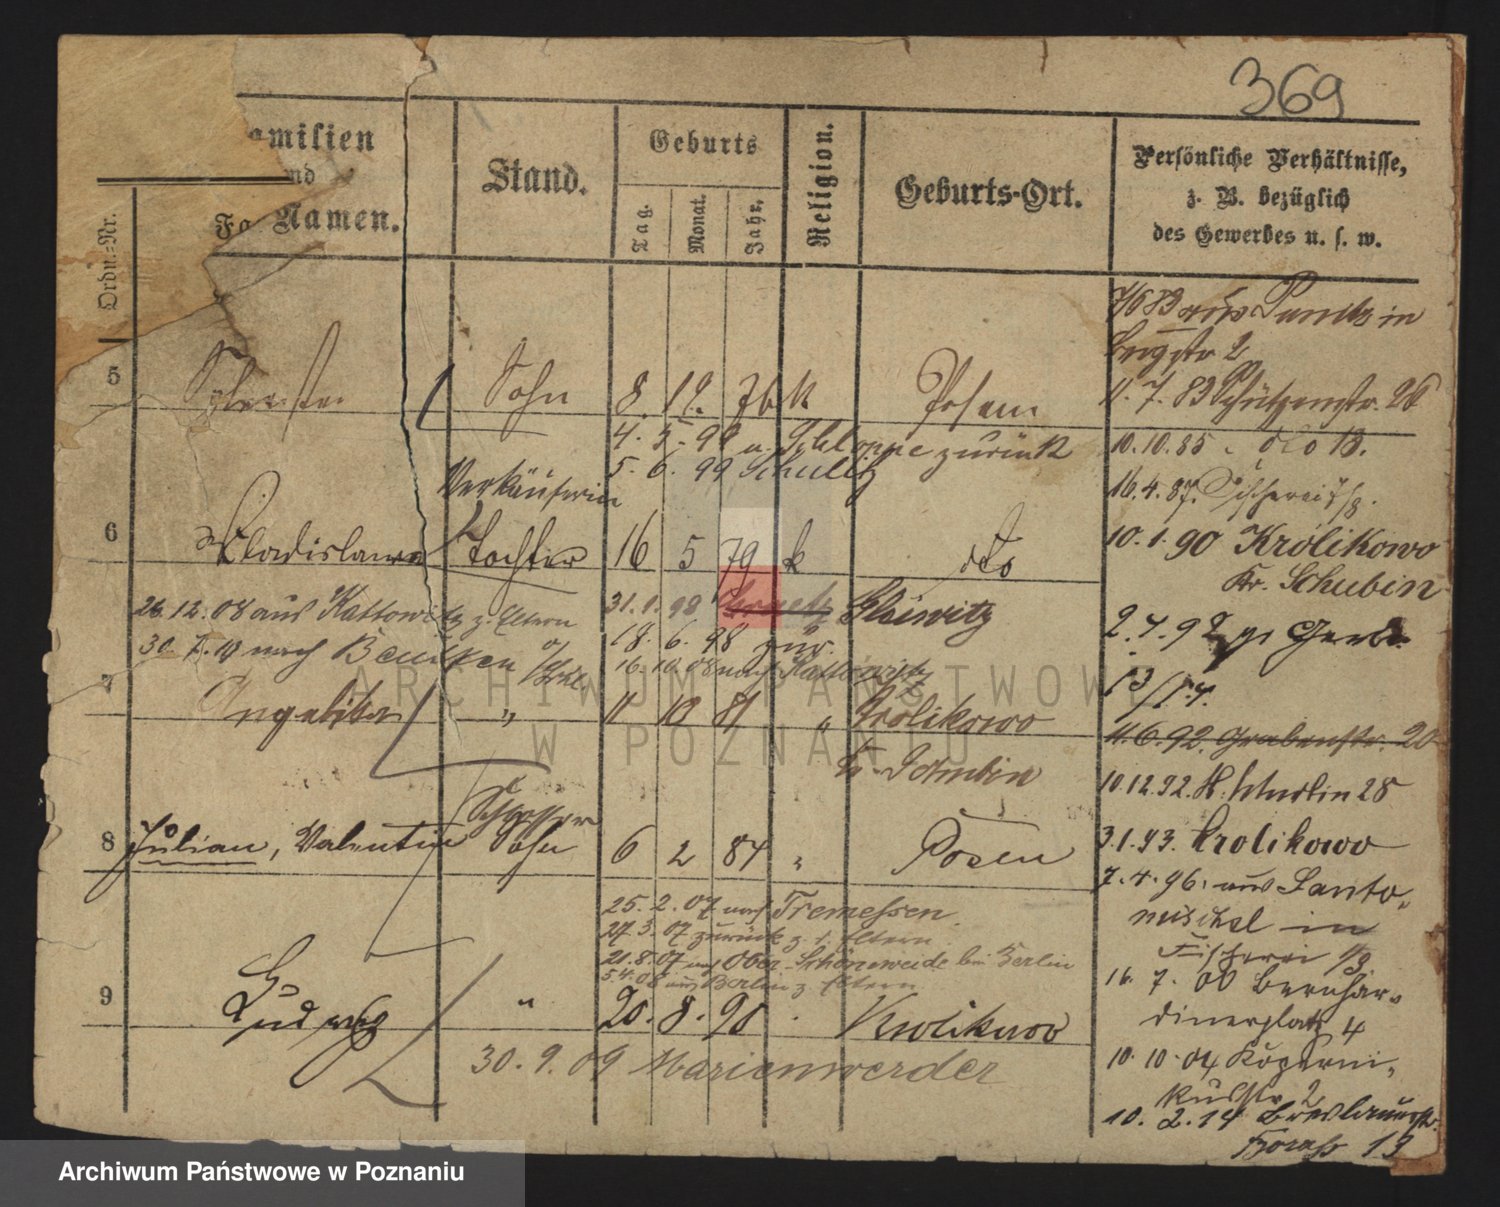 369
Familien
und
Namen.
Stand.
Geburts
Tag.
Monat.
Jahr.
Religion.
Geburts-Ort.
Persönliche Verhältnisse,
z. B. bezüglich
des Gewerbes u. s. w.
Ordn.-Nr.
7/6 83 aus Punitz in
Bergstr. 2
5 Sohn 8. 12. 76 K Posen
11. 7. 83 Schützenstr. 26
4. 5. 99 a. Schloppe zurück
5. 6. 99 Schulitz
10. 10. 85 dto 13.
16. 4. 87. Fischerei
Verkäuferin
6 Wladislawa Tochter 16 5 79 k dto
10. 1. 90 Królikowo
Kr. Schubin
26. 12. 08 aus Kattowitz z. Eltern
31. 1. 98 Gleiwitz
30. 7. 10 nach
18. 6. 98 zur.
16. 10. 08 nach Kattowitz
2. 7. 92
13/14.
7 Angelika " 11 10 81 " Krolikowo
Kr. Schubin
4. 6. 92. Grabenstr. 20
10. 12. 92. St. Martin 28
8 Julian, Valentin Sohn 6 2 84 " Posen
3. 1. 93. Krolikowo
7. 4. 96. aus Santo-
mischel in
Fischerei
25. 2. 07 nach Tremessen.
27. 3. 07 zurück z. Eltern
21. 8. 07 nach Ober-Schöneweide bei Berlin
5. 4. 08 aus Berlin z. Eltern
16. 7. 00 Bernhar-
dinerplatz 4
9 Ludwig " 20. 8. 90 Krolikowo
30. 9. 09 Marienwerder
10. 10. 04 Koperni-
kusstr. 2
10. 2. 14 Breslauerstr.
13
ARCHIWUM PAŃSTWOWE
W POZNANIU
Archiwum Państwowe w Poznaniu